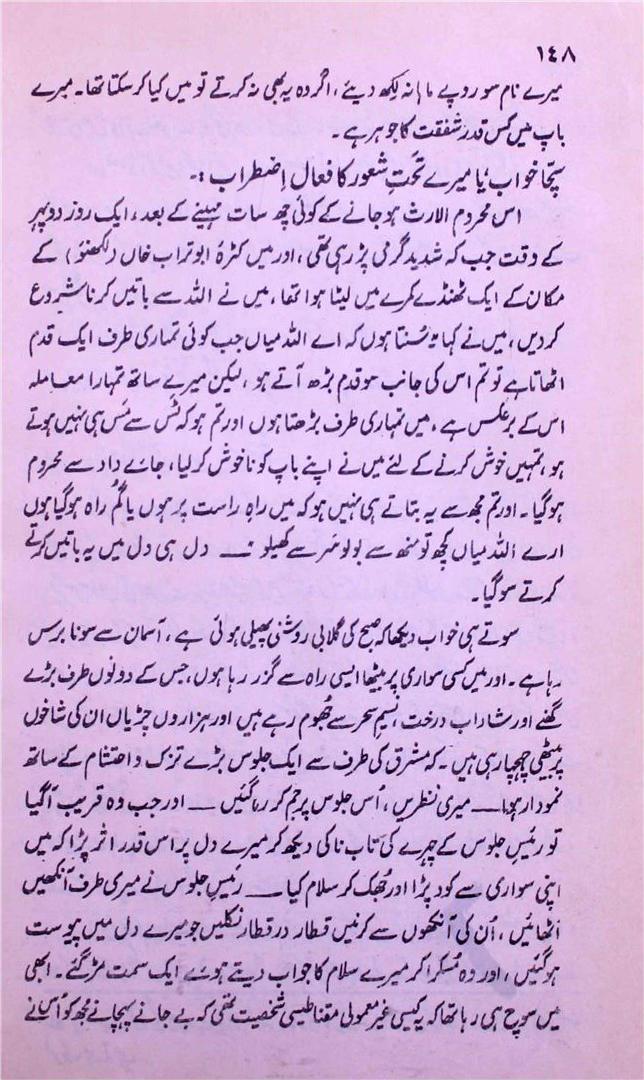 ۱۴۸
میرے نام سو روپے ماہانہ لکھ دیئے، اگر وہ یہ بھی نہ کرتے تو میں کیا کرسکتا تھا۔ میرے
باپ میں کس قدر شفقت کا جوہر ہے۔
سچّا خواب یا میرے تحتِ شعور کا فعال اِضطراب :۔
اس محروم الارث ہو جانے کے کوئی چھ سات مہینے کے بعد، ایک روز دوپہر
کے وقت جب کہ شدید گرمی پڑ رہی تھی، اور میں کٹرۂ ابو تراب خاں (لکھنؤ) کے
مکان کے ایک ٹھنڈے کمرے میں لیٹا ہوا تھا، میں نے اللہ سے باتیں کرنا شروع
کردیں، میں نے کہا یہ سُنتا ہوں کہ اے اللہ میاں جب کوئی تمہاری طرف ایک قدم
اٹھاتا ہے تو تم اس کی جانب سو قدم بڑھ آتے ہو، لیکن میرے ساتھ تمہارا معاملہ
اس کے برعکس ہے، میں تمہاری طرف بڑھتا ہوں اور تم ہو کہ ٹس سے مَس ہی نہیں ہوتے
ہو، تمہیں خوش کرنے کے لئے میں نے اپنے باپ کو ناخوش کرلیا، جائے داد سے محروم
ہوگیا۔ اور تم مجھ سے یہ بتاتے ہی نہیں ہو کہ میں راہِ راست پر ہوں یا گُم راہ ہوگیا ہوں
ارے اللہ میاں کچھ تو منھ سے بولو سر سے کھیلو ۔۔۔ دل ہی دل میں یہ باتیں کرتے
کرتے سوگیا۔
سوتے ہی خواب دیکھا کہ صبح کی گلابی روشنی پھیلی ہوئی ہے، آسمان سے سونا برس
رہا ہے۔ اور میں کسی سواری پر بیٹھا ایسی راہ سے گزر رہا ہوں، جس کے دونوں طرف بڑے
گھنے اور شاداب درخت، نسیمِ سحر سے جھوم رہے ہیں اور ہزاروں چڑیاں ان کی شاخوں
پر بیٹھی چہچہا رہی ہیں۔ کہ مشرق کی طرف سے ایک جلوس بڑے تزک و احتشام کے ساتھ
نمودار ہوا ـــ میری نظریں، اُس جلوس پر جم کر رہ گئیں ـــ اور جب وہ قریب آگیا
تو رئیسِ جلوس کے چہرے کی تاب ناکی دیکھ کر میرے دل پر اس قدر اثر پڑا کہ میں
اپنی سواری سے کود پڑا اور جُھک کر سلام کیا ـــ رئیسِ جلوس نے میری طرف آنکھیں
اٹھائیں، اُن کی آنکھوں سے کرنیں قطار در قطار نکلیں جو میرے دل میں پیوست
ہوگئیں، اور وہ مُسکرا کر میرے سلام کا جواب دیتے ہوئے ایک سمت مڑ گئے۔ ابھی
میں سوچ ہی رہا تھا کہ یہ کیسی غیر معمولی مقناطیسی شخصیت تھی کہ بے جانے پہچانے مُجھ کو